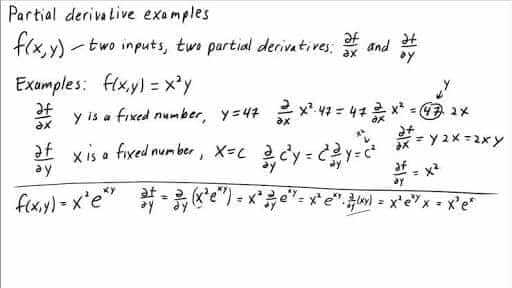 Partial derivative examples
f(x,y) – two inputs, two partial derivatives: ∂f/∂x and ∂f/∂y
Examples: f(x,y) = x²y
∂f/∂x y is a fixed number, y=47 ∂/∂x x²·47 = 47 ∂/∂x x² = 47·2x
y
∂f/∂x = y2x = 2xy
∂f/∂y x is a fixed number, x=c ∂/∂y c²y = c² ∂/∂y y = c²
x²
∂f/∂y = x²
f(x,y) = x²e^xy ∂f/∂y = ∂/∂y (x²e^xy) = x² ∂/∂y e^xy = x² e^xy · ∂/∂y (xy) = x²e^xy x = x³e^x